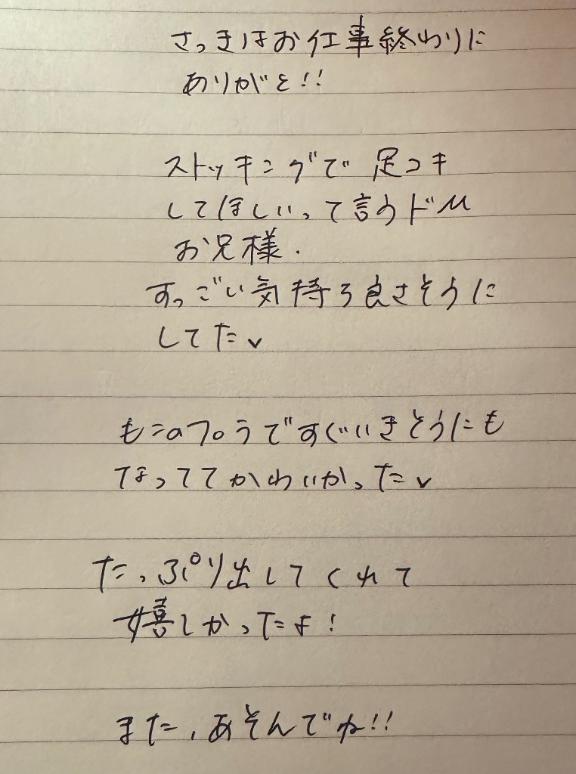 さっきはお仕事終わりに
ありがと!!
ストッキングで足コキ
してほしいって言うドM
お兄様.
すっごい気持ち良さそうに
してた✓
もこのフェラですぐいきそうにも
なっててかわいかった✓
たっぷり出してくれて
嬉しかったよ!
また、あそんでね!!